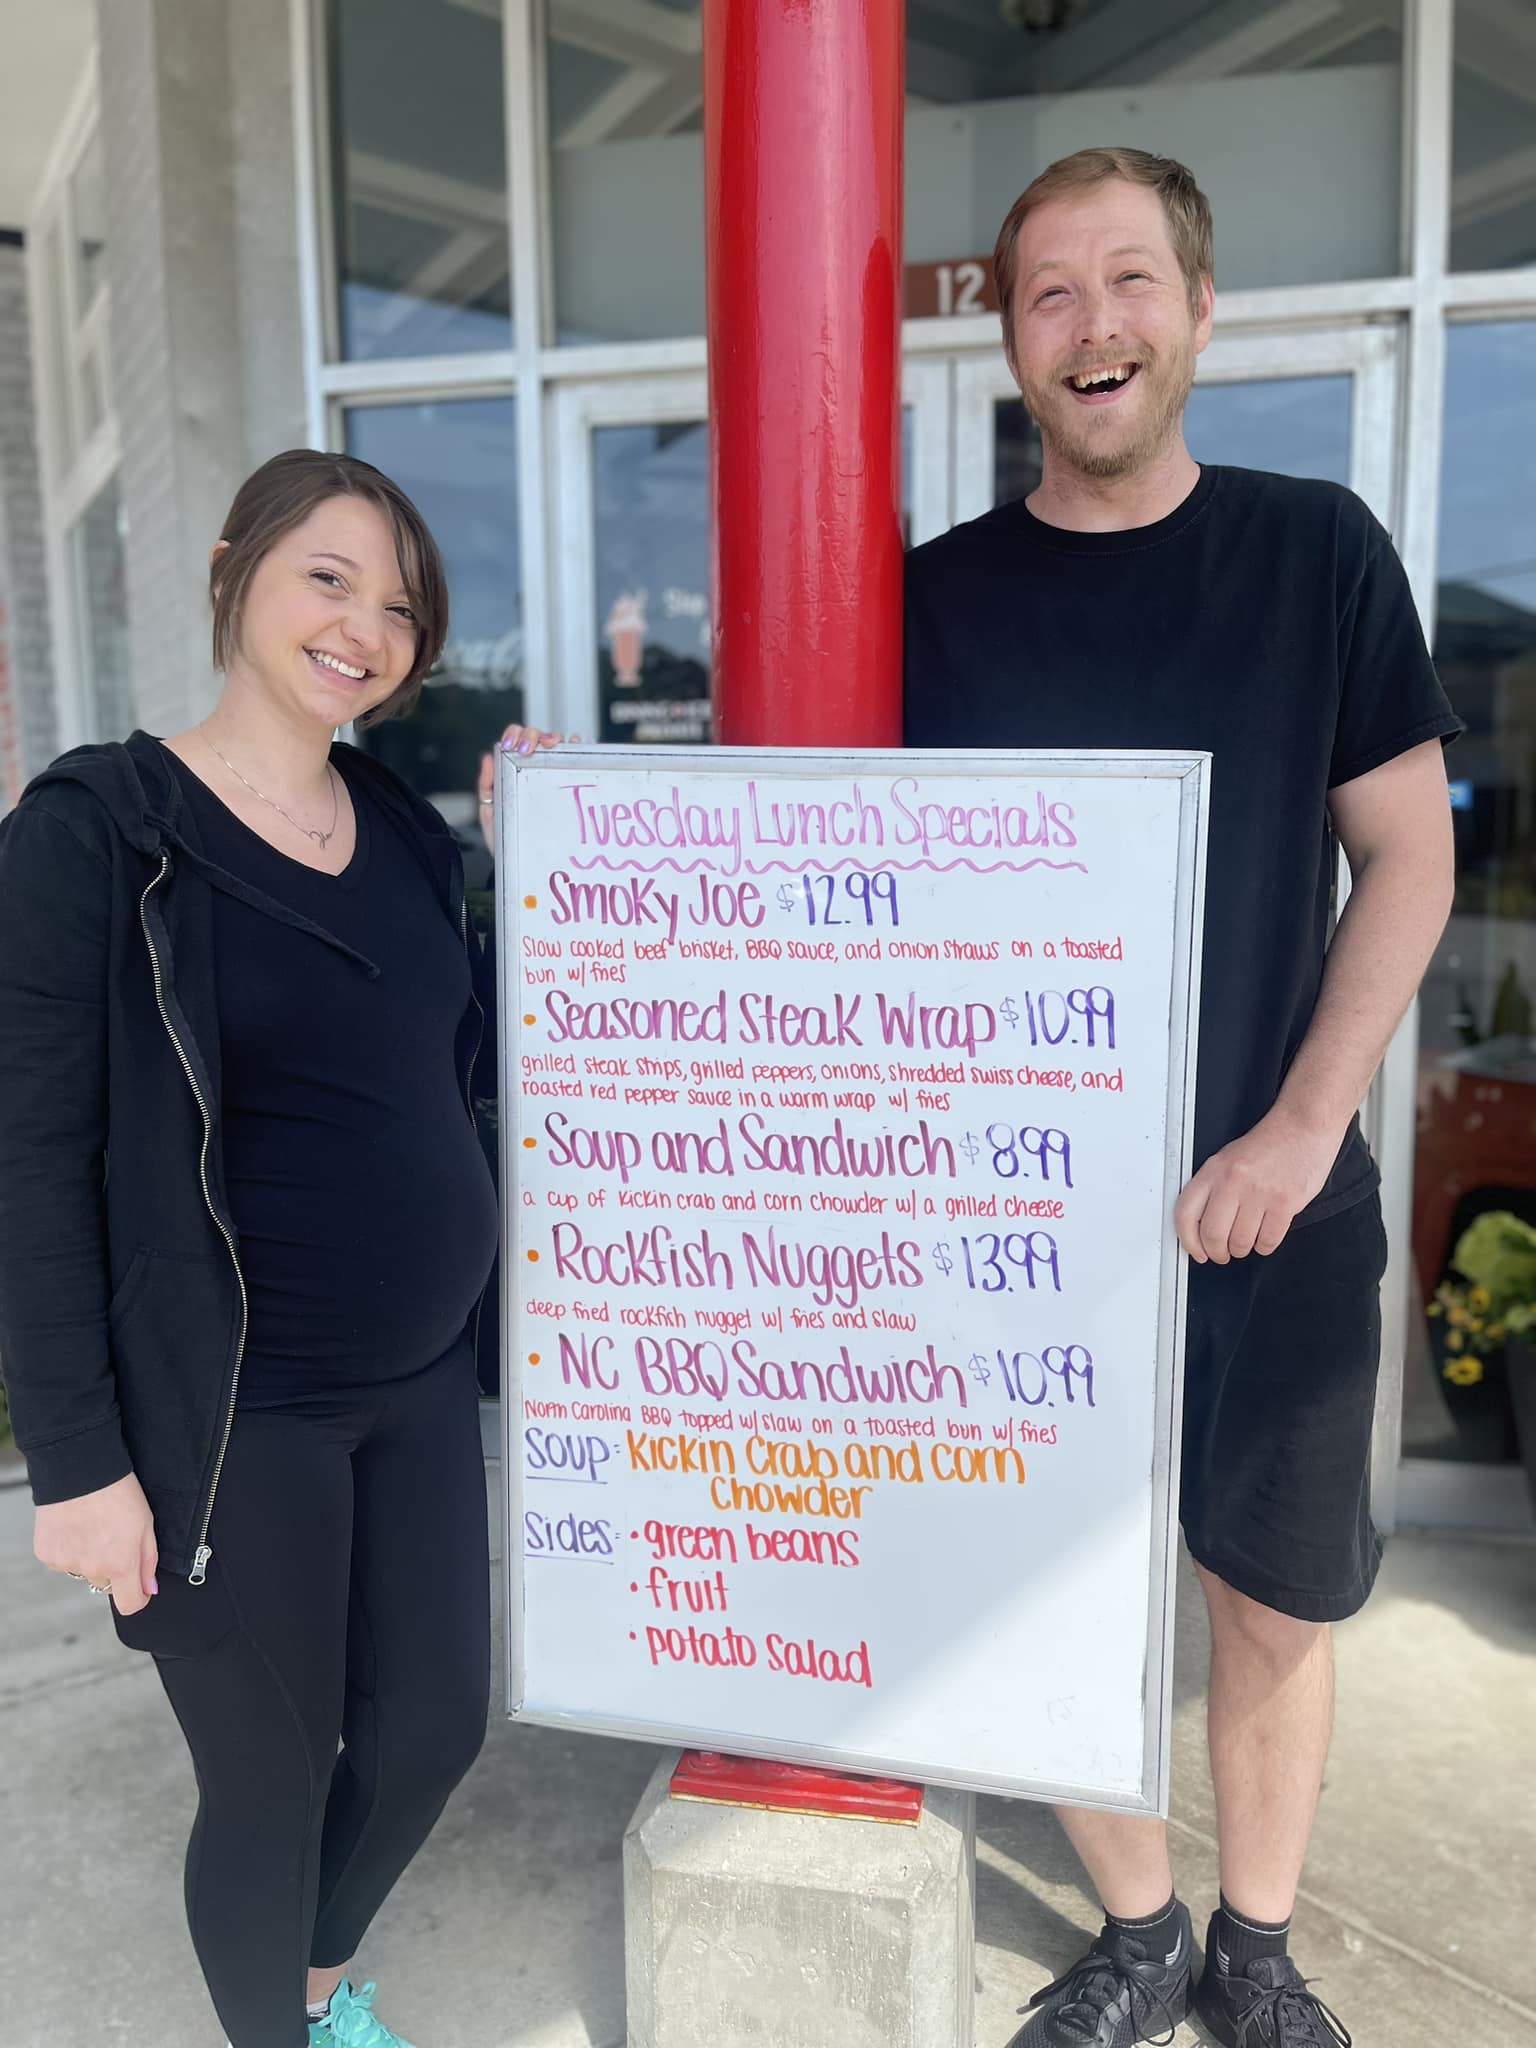 12
Tuesday Lunch Specials
• Smoky Joe $12.99
Slow cooked beef brisket, BBQ sauce, and onion straws on a toasted
bun w/ fries
• Seasoned Steak Wrap $10.99
grilled steak strips, grilled peppers, onions, shredded swiss cheese, and
roasted red pepper sauce in a warm wrap w/ fries
• Soup and Sandwich $8.99
a cup of kickin crab and corn chowder w/ a grilled cheese
• Rockfish Nuggets $13.99
deep fried rockfish nugget w/ fries and slaw
• NC BBQ Sandwich $10.99
North Carolina BBQ topped w/ slaw on a toasted bun w/ fries
Soup: Kickin Crab and corn
Chowder
Sides: • green beans
• fruit
• potato salad